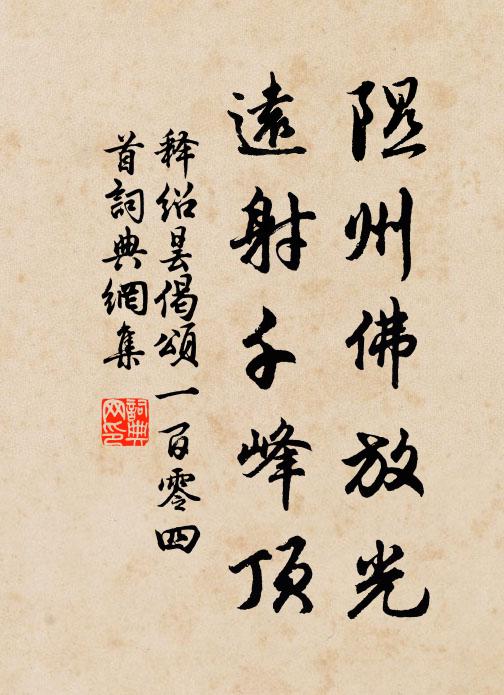 隰州佛放光
遠射千峰頂
释紹昙偈頌一百零四
首詞典網集
詞典
网印